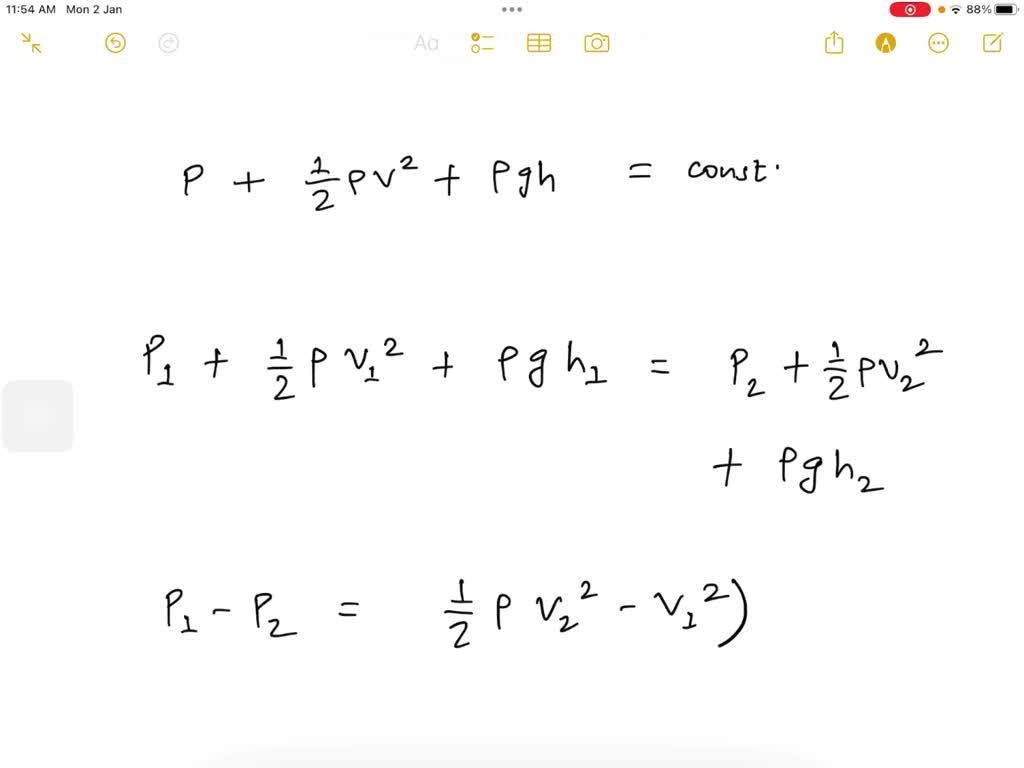 11:54 AM Mon 2 Jan 88%
Aa
P + 1/2 ρv² + ρgh = const.
P₁ + 1/2 ρ v₁² + ρ g h₁ = P₂ + 1/2 ρv₂²
+ ρgh₂
P₁ - P₂ = 1/2 ρ v₂² - v₁²)